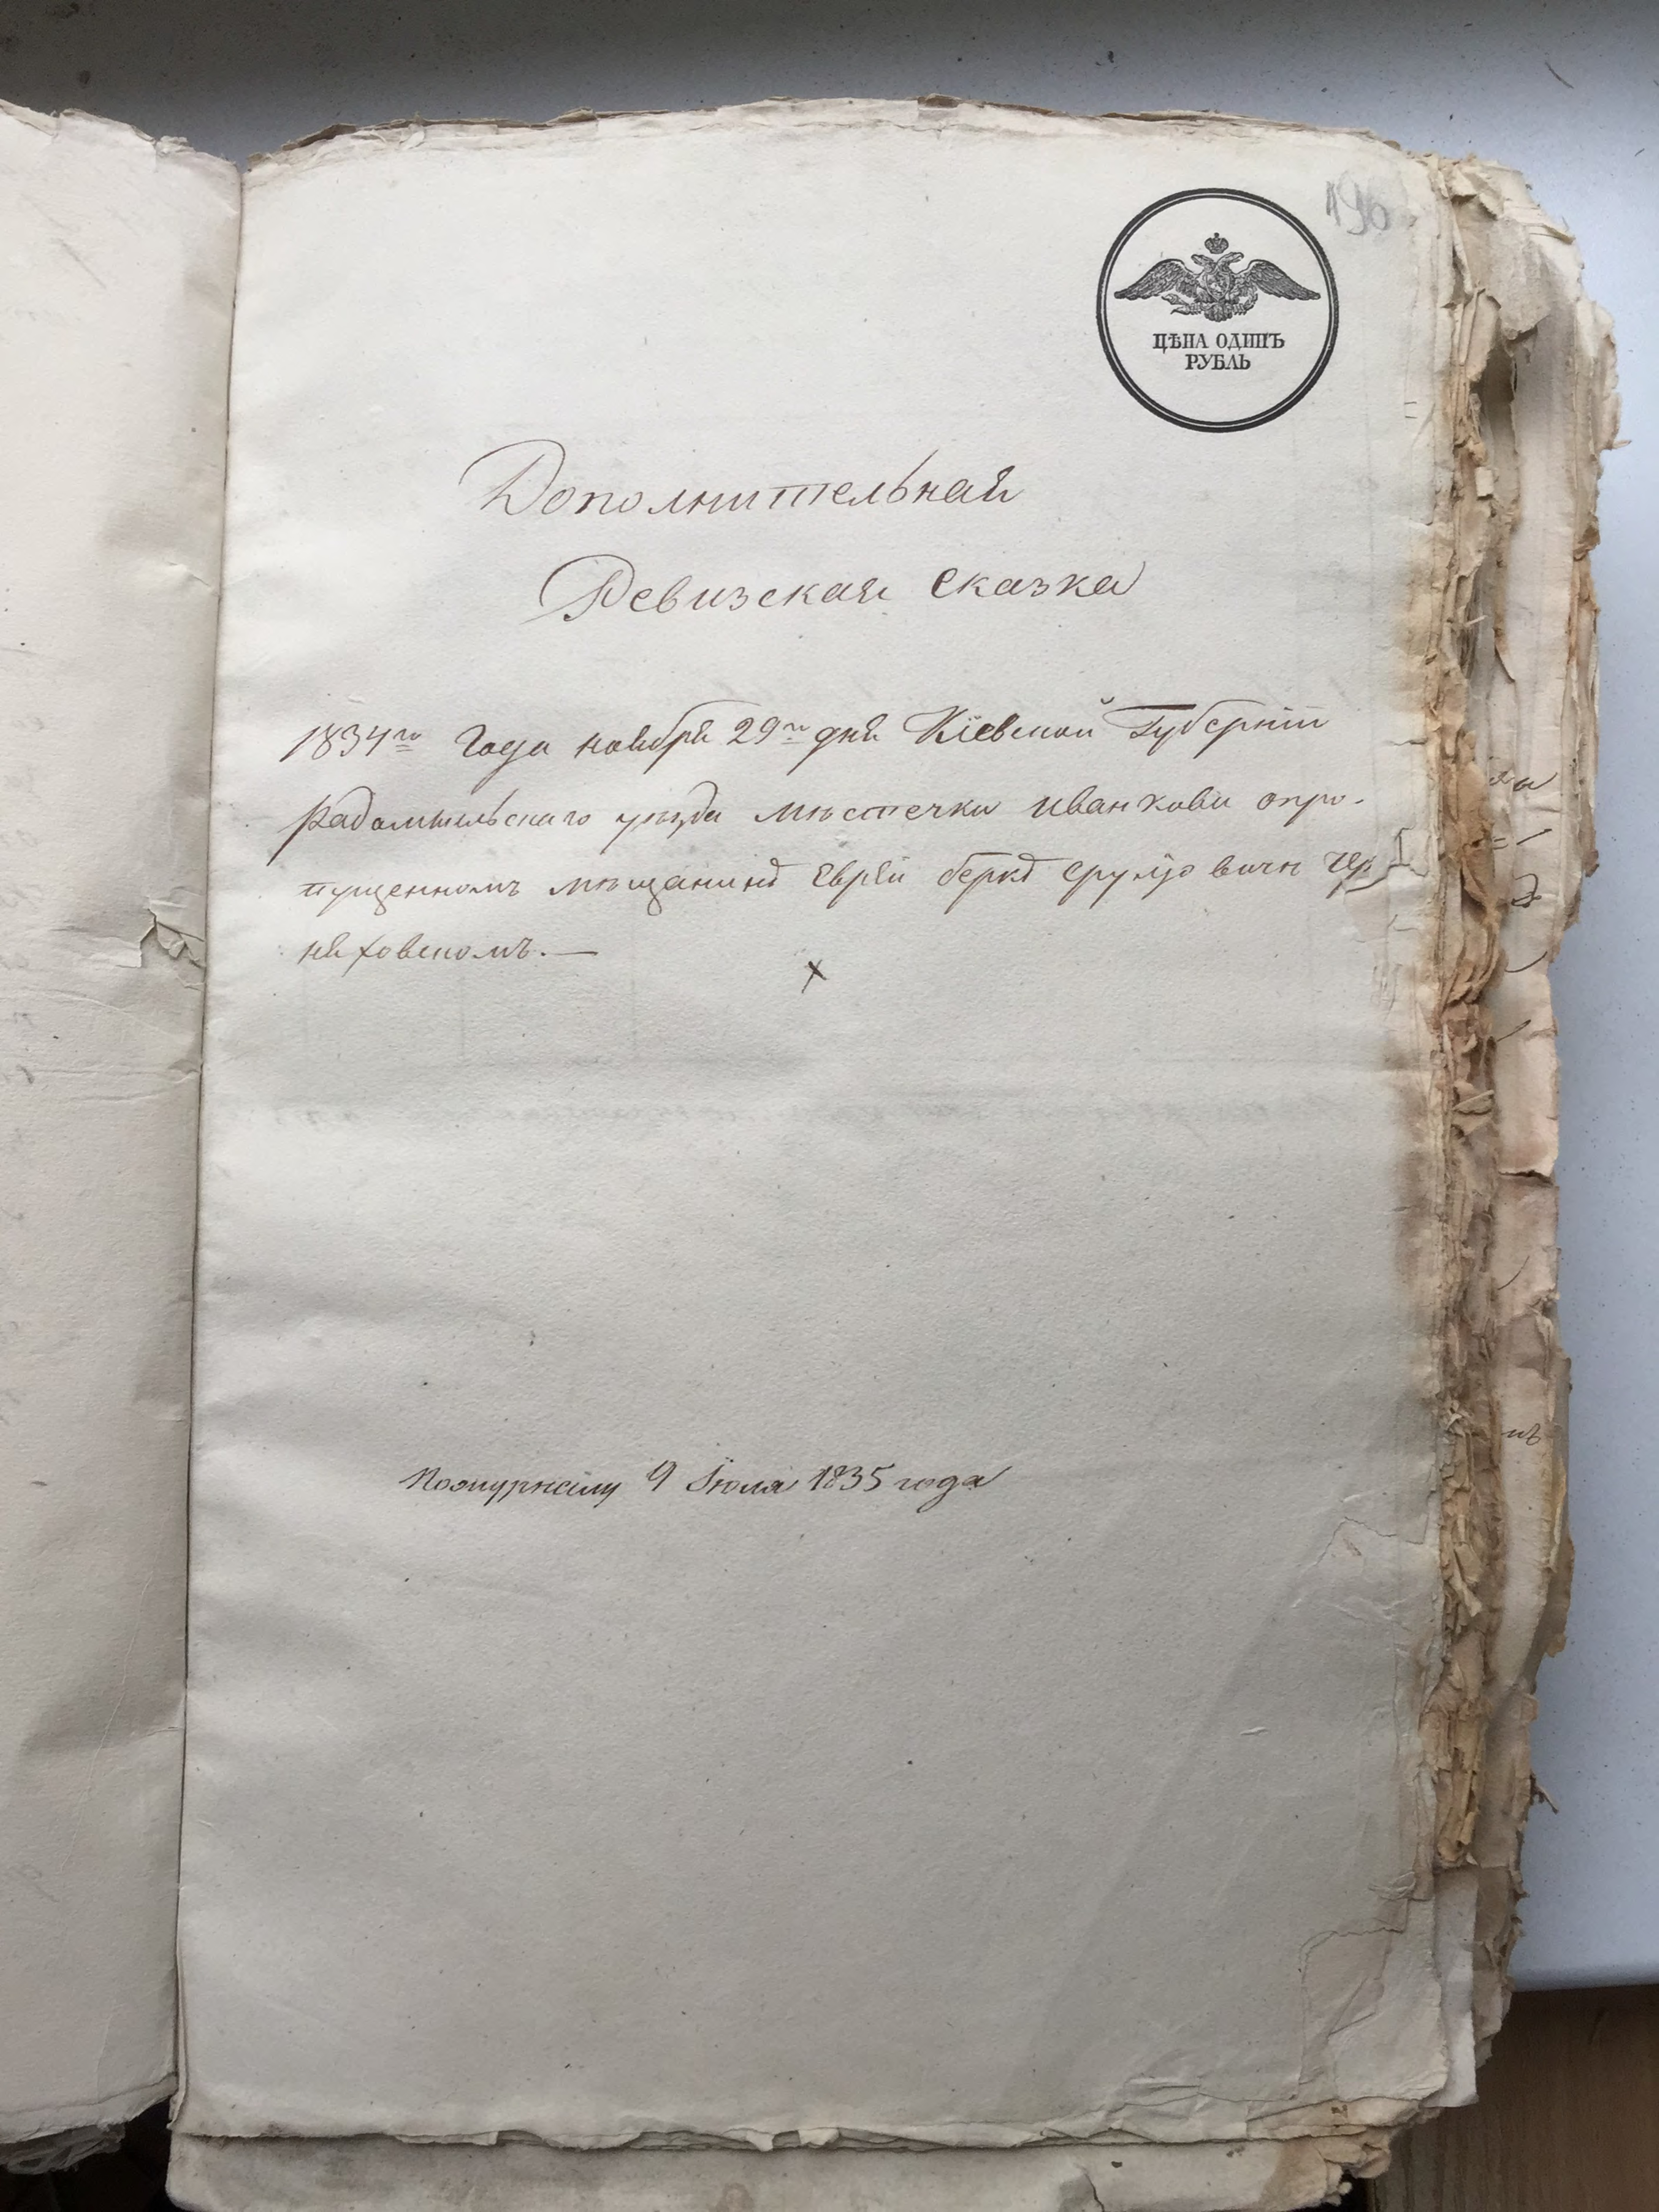 196
ЦѢНА ОДИНЪ
РУБЛЬ
Дополнительная
Ревизская сказка
1834го года ноября 29го дня Кіевской Губерніи
Радомыльскаго уезда мѣстечка иванкова опро-
пущенномъ мещанинѣ еврѣи беркѣ срулѣовичи чер
няховскомъ. —
х
9 Іюля 1835 года